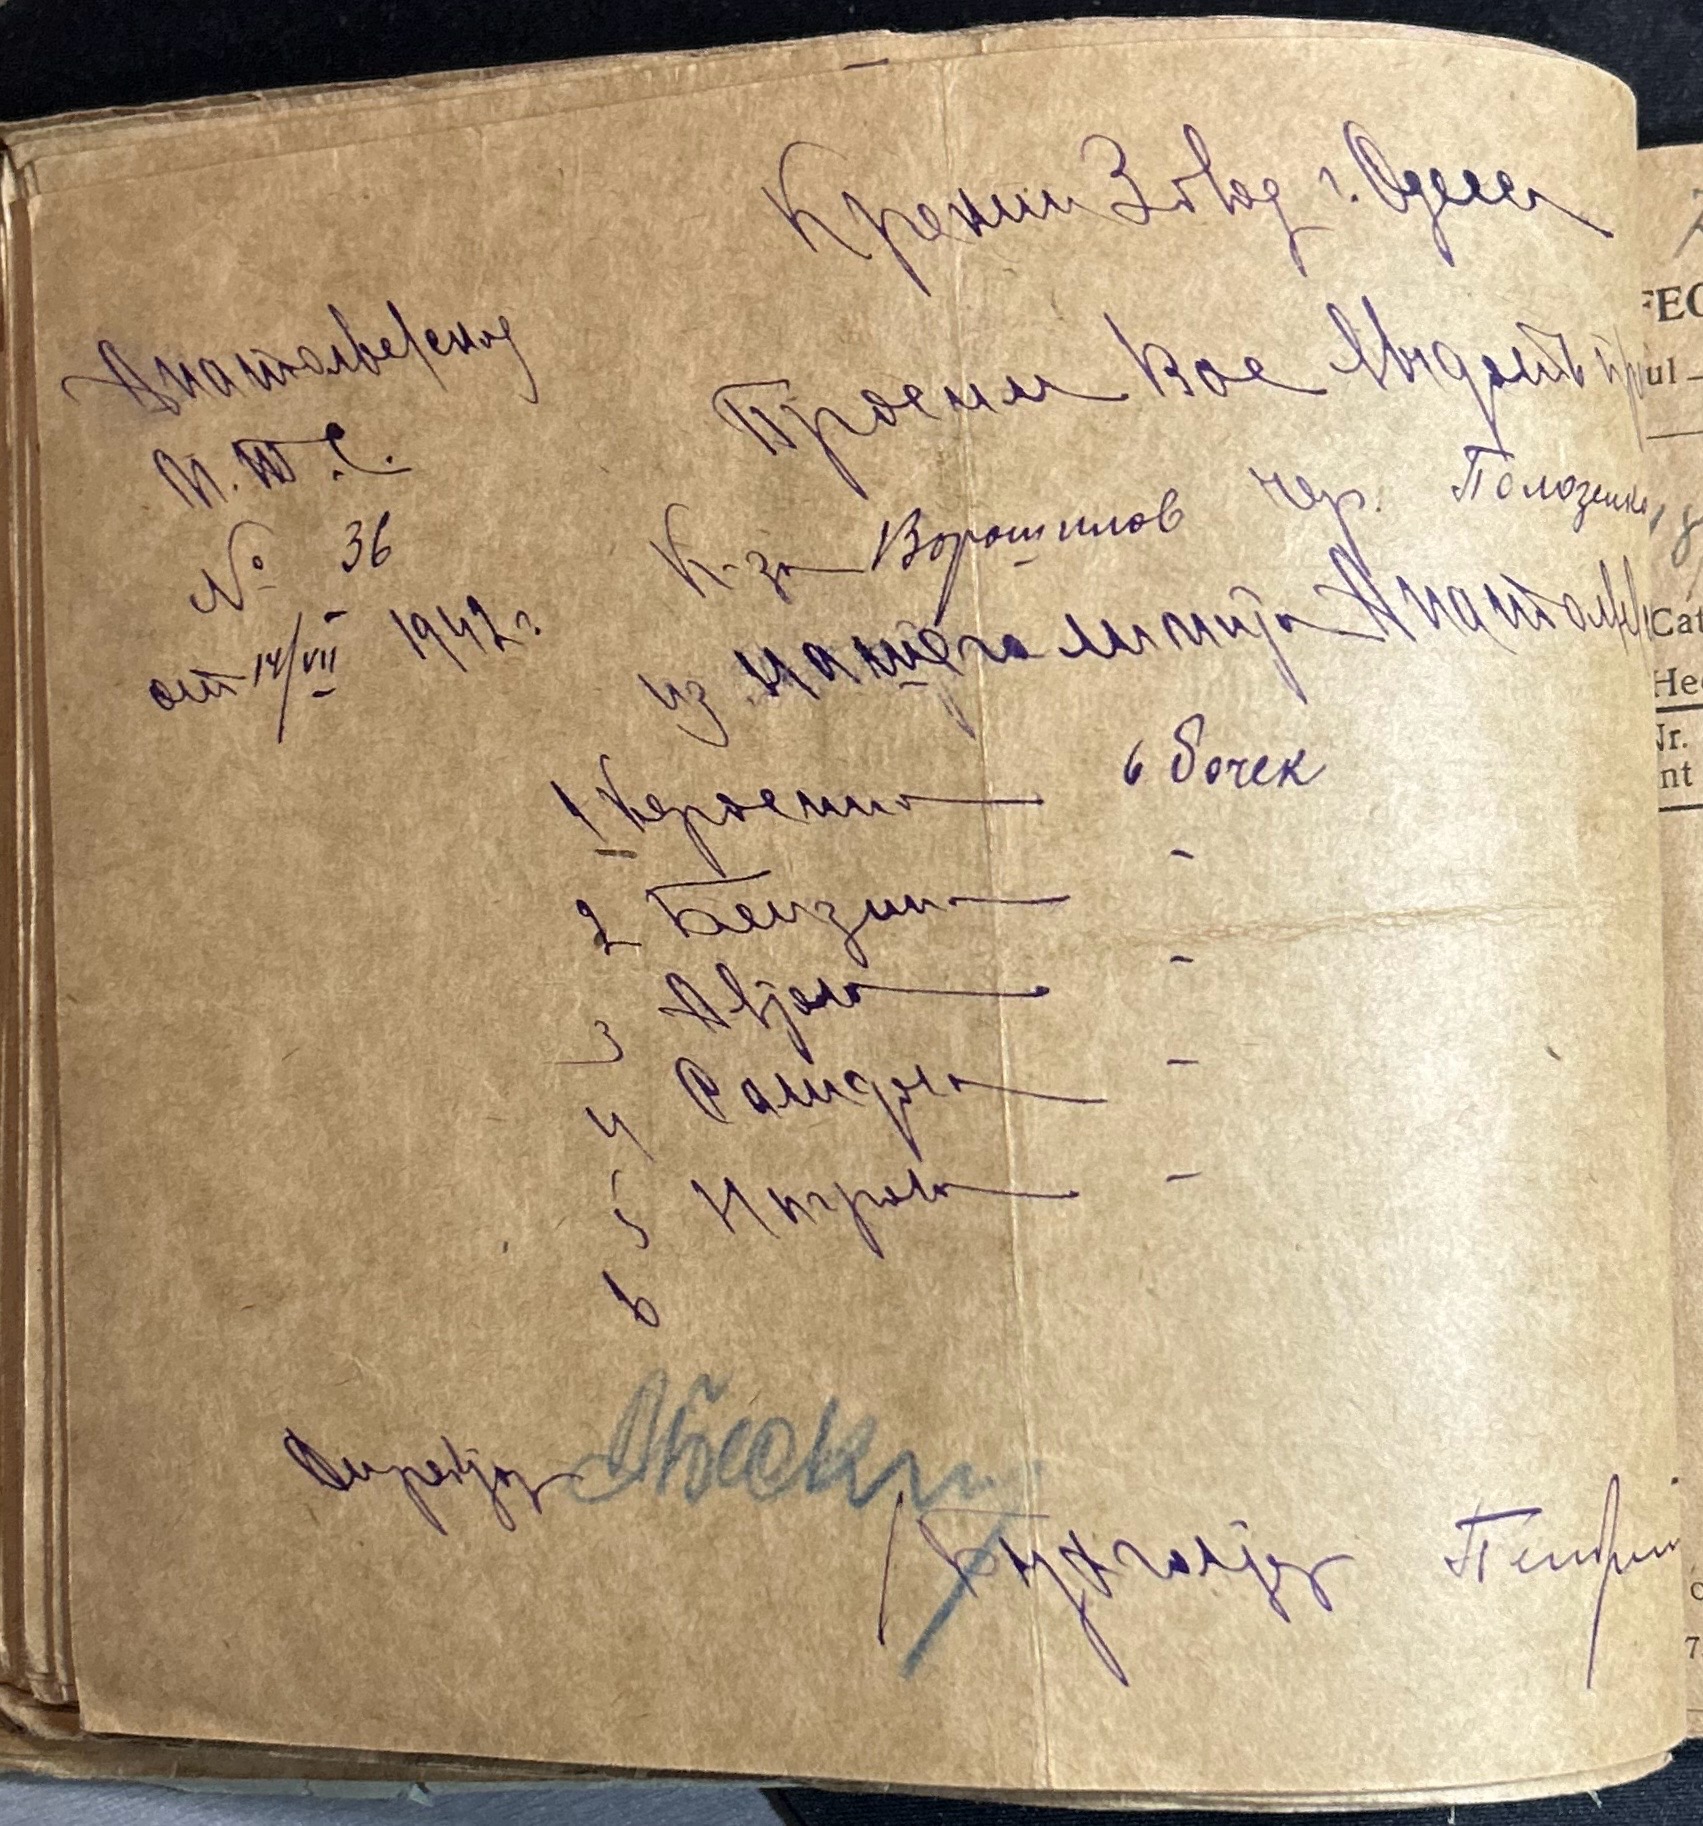 Крекин Завод г. Одесса
Анатольевская
М.Т.С.
№ 36
от 14/VII 1942 г.
Просим Вас выдать
К-за Ворошилов чер. Полозенко
из нашего лимита Анатол
1 Керосина 6 бочек
2 Бензина -
3 Автола -
4 Солидола -
5 Нигрола -
6
Директор
Бухгалтер
FEC
ul
Cat
He
Nr.
nt
7